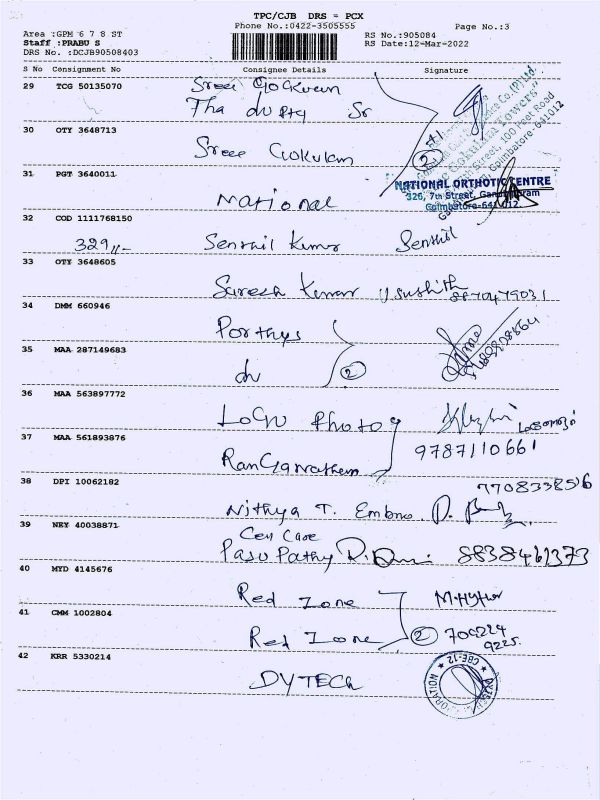 TPC/CJB DRS = PCX
Phone No.:0422-3505555 Page No.:3
Area :GPM 6 7 8 ST
RS No.:905084
Staff :PRABU S
RS Date:12-Mar-2022
DRS No. :DCJB90508403
S No Consignment No Consignee Details Signature
29 TCG 50135070 Sree Gokulam
Sr
30 OTY 3648713
Sree Gokulam 2
31 PGT 3640011
National
NATIONAL ORTHOTIC CENTRE
326, 7th Street, Gandhipuram
Coimbatore-641 012
32 COD 1111768150
329/- Senthil Kumar Senthil
33 OTY 3648605
Suresh Kumar
34 DMM 660946
Porthys
35 MAA 287149683
du 2
36 MAA 563897772
LoGu Photo
37 MAA 561893876 9787110661
RanGanathan
38 DPI 10062182 7708338516
Nithya T. Embro
39 NEY 40038871
Cell Care
PasuPathy 8838461373
40 MYD 4145676
Red Zone
41 CMM 1002804
Red Zone 2 709224
9225
42 KRR 5330214
DYTECH
CBE-12